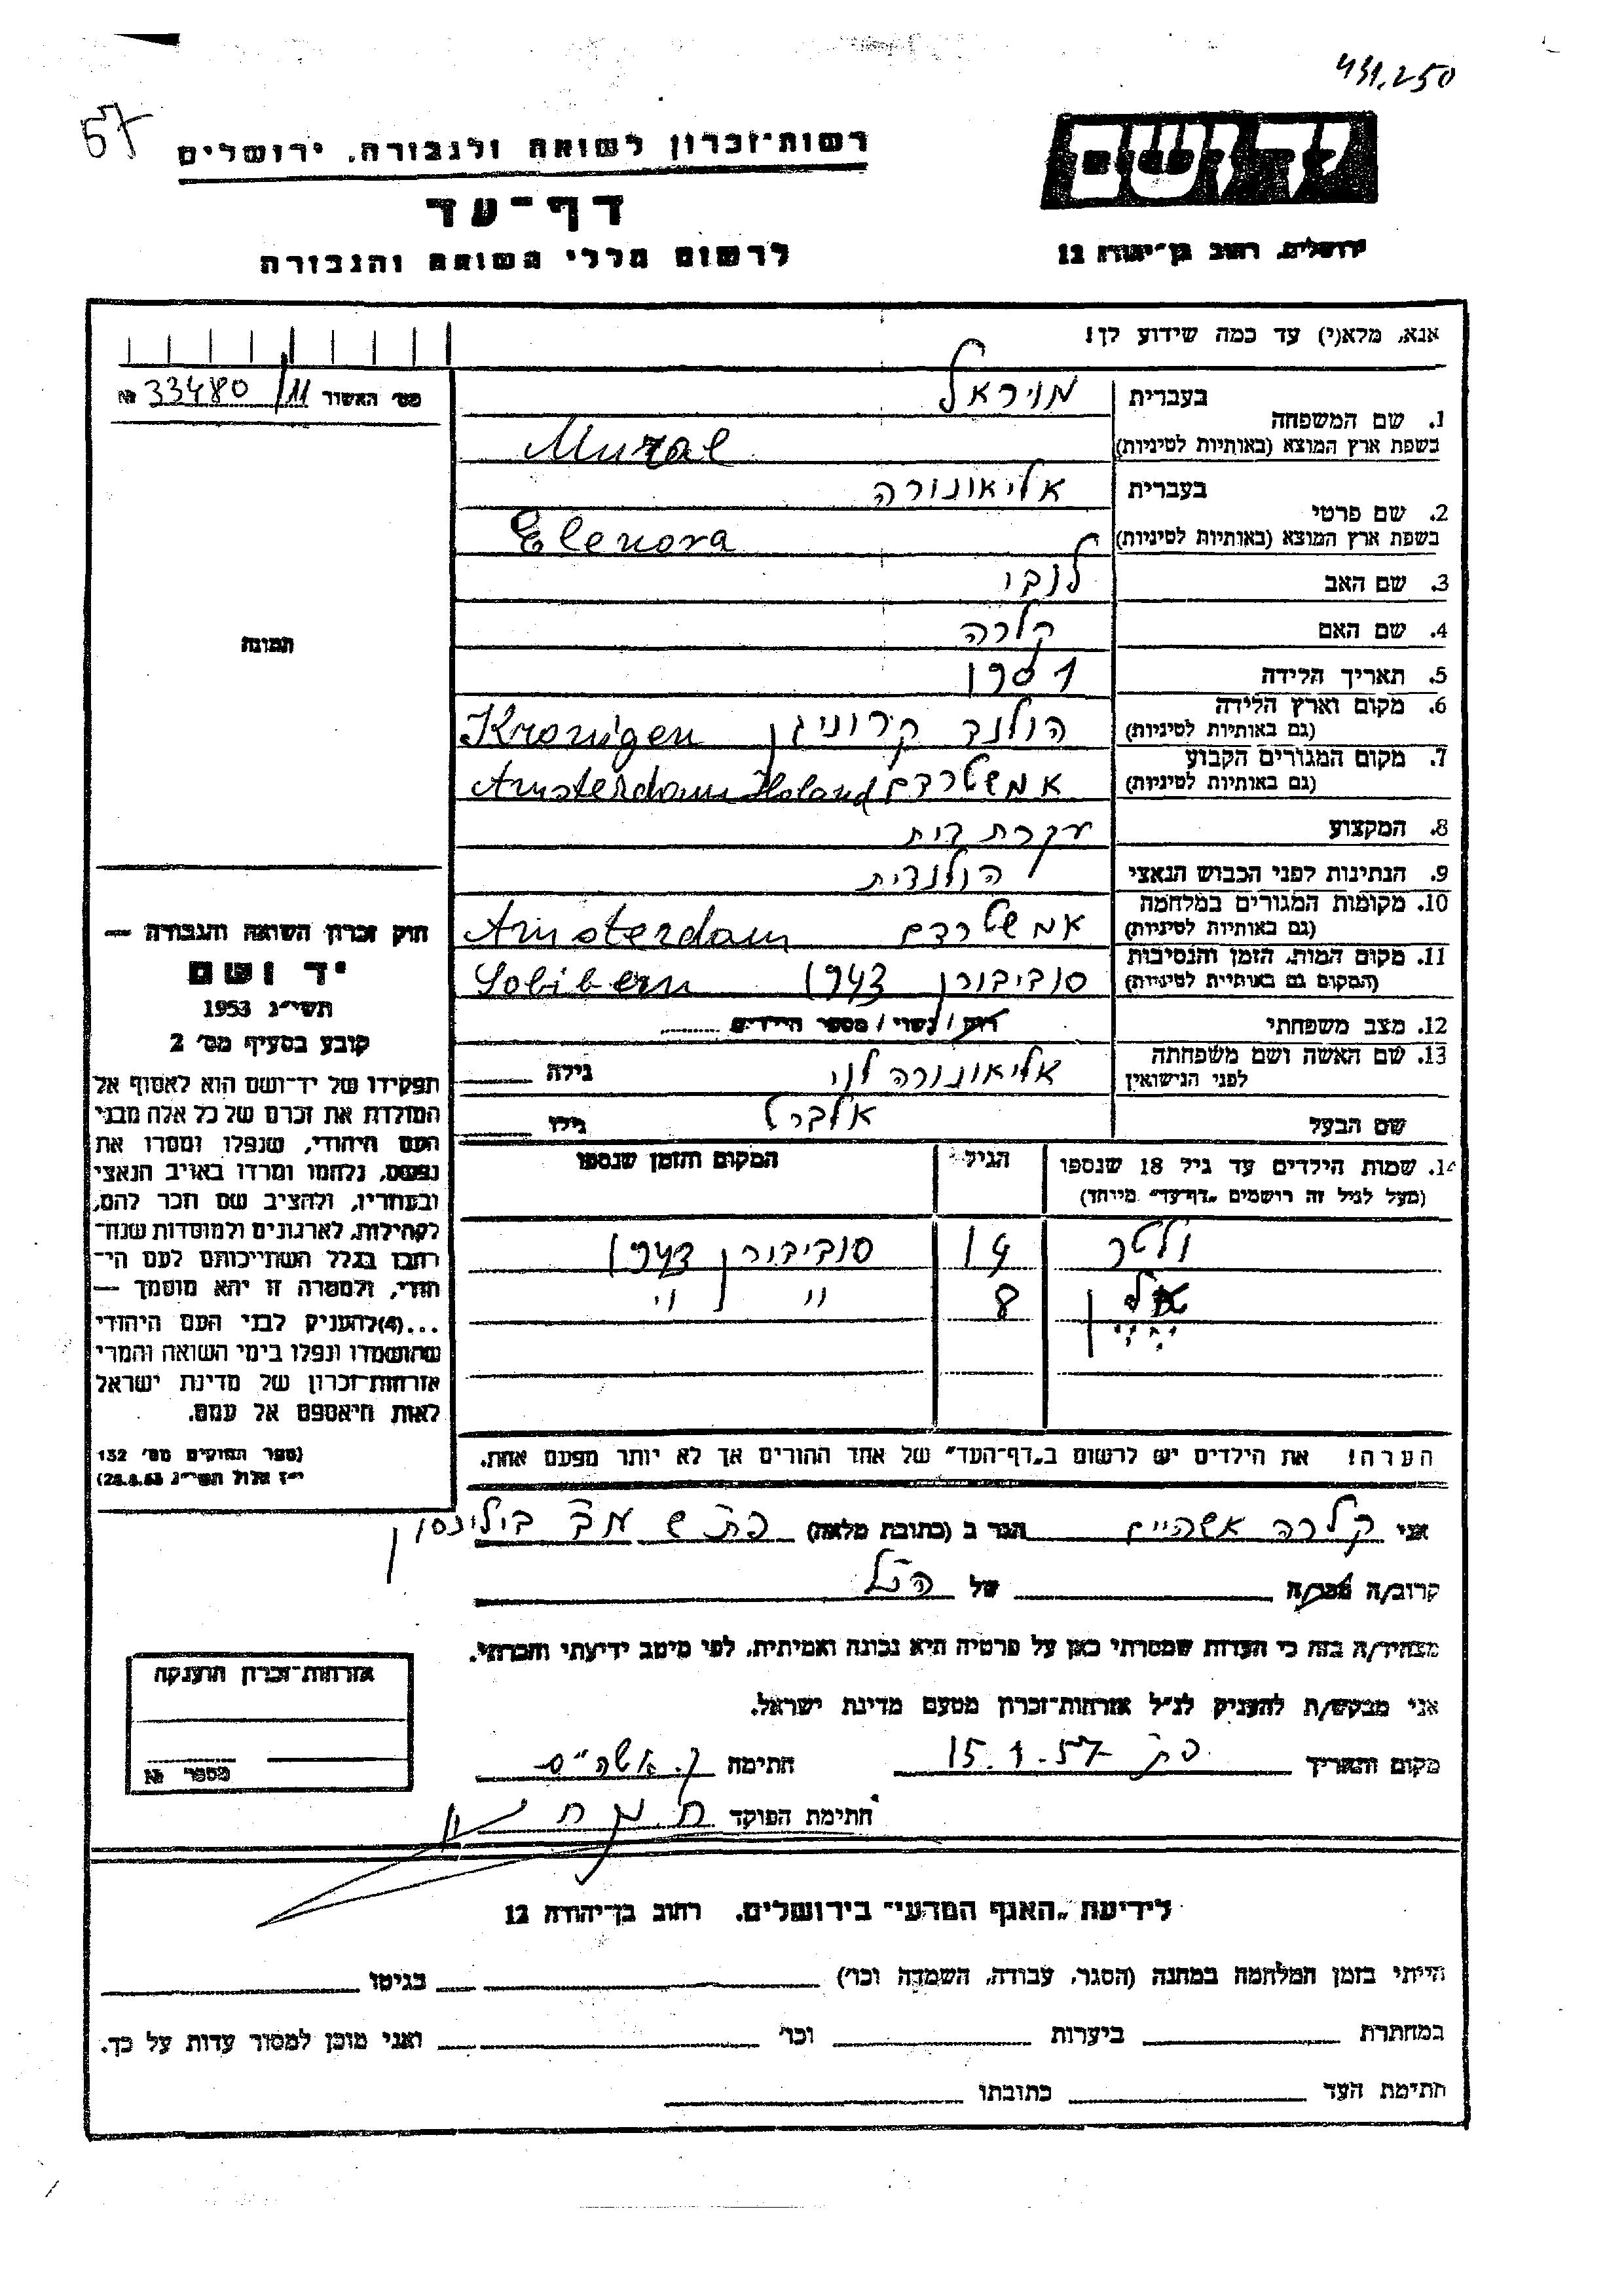 431.250
57
יד ושם
רשות־זכרון לשואה ולגבורה, ירושלים
דף־עד
ירושלים, רחוב בן־יהודה 12
לרשום חללי השואה והגבורה
אנא, מלא(י) עד כמה שידוע לך!
מס׳ האשור № 33480/11
1. שם המשפחה
בעברית מויראל
בשפת ארץ המוצא (באותיות לטיניות) Muzal
2. שם פרטי
בעברית אליאונורה
בשפת ארץ המוצא (באותיות לטיניות) Elenora
3. שם האב
4. שם האם קלרה
תמונה
5. תאריך הלידה
6. מקום וארץ הלידה הולנד קרוניגן Kronigen
(גם באותיות לטיניות)
7. מקום המגורים הקבוע אמשטרדם Amsterdam Holand
(גם באותיות לטיניות)
8. המקצוע עקרת בית
9. הנתינות לפני הכבוש הנאצי הולנדית
10. מקומות המגורים במלחמה אמשטרדם Amsterdam
(גם באותיות לטיניות)
11. מקום המות, הזמן והנסיבות סוביבורן 1943 Sobibern
(המקום גם באותיות לטיניות)
12. מצב משפחתי רווק / נשוי / מספר הילדים
13. שם האשה ושם משפחתה אליאונורה לוי גילה
לפני הנישואין
שם הבעל אלברט גילו
14. שמות הילדים עד גיל 18 שנספו הגיל המקום והזמן שנספו
(מעל לגיל זה רושמים „דף־עד” מיוחד)
ולטר 14 סוביבורן 1943
8 " "
הערה! את הילדים יש לרשום ב„דף־העד” של אחד ההורים אך לא יותר מפעם אחת.
חוק זכרון השואה והגבורה —
יד ושם
תשי״ג 1953
קובע בסעיף מס׳ 2
תפקידו של יד־ושם הוא לאסוף אל
המולדת את זכרם של כל אלה מבני
העם היהודי, שנפלו ומסרו את
נפשם, נלחמו ומרדו באויב הנאצי
ובעוזריו, ולהציב שם וזכר להם,
לקהילות, לארגונים ולמוסדות שנח־
רבו בגלל השתייכותם לעם הי־
הודי, ולמטרה זו יהא מוסמך —
...(4) להעניק לבני העם היהודי
שהושמדו ונפלו בימי השואה והמרי
אזרחות־זכרון של מדינת ישראל
לאות היאספם אל עמם.
(ספר החוקים מס׳ 132
י״ז אלול תשי״ג 28.8.53)
אני קלרה אשהיים הגר ב (כתובת מלאה) פ״ת בילינסון
קרוב/ה מכר/ה של הנ״ל
מצהיר/ה בזה כי העדות שמסרתי כאן על פרטיה היא נכונה ואמיתית, לפי מיטב ידיעתי והכרתי.
אני מבקש/ת להעניק לנ״ל אזרחות־זכרון מטעם מדינת ישראל.
מקום ותאריך פ״ת 15.1.57 חתימה ק. אשהיים
חתימת הפוקד
אזרחות־זכרון הוענקה
מספר №
לידיעת „האגף המדעי” בירושלים, רחוב בן־יהודה 12
הייתי בזמן המלחמה במחנה (הסגר, עבודה, השמדה וכו׳) בגיטו
במחתרת ביערות וכו׳ ואני מוכן למסור עדות על כך.
חתימת העד כתובתו